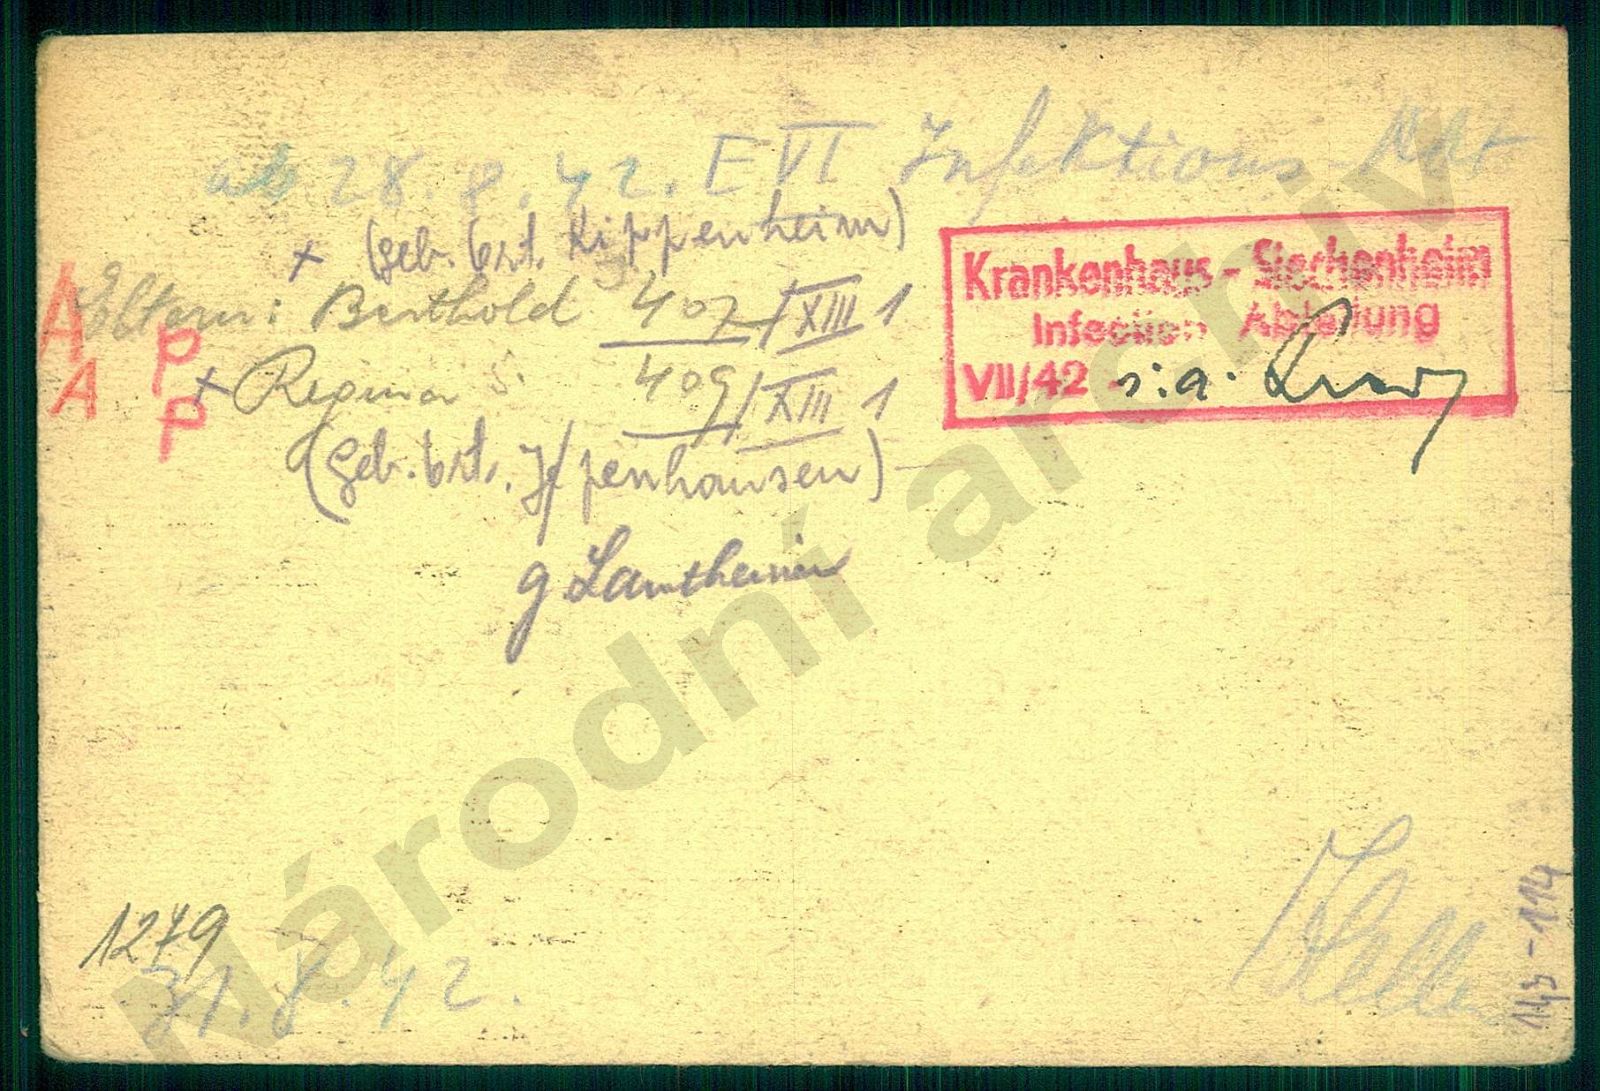 ab 28. 8. 42. E VI Infektions-Abt
+ (geb. Ort. Kippenheim)
Eltern: Berthold 407/XIII 1
A P
+ Regina S. 409/XIII 1
A P
(geb. Ort. Ippenhausen)
Krankenhaus - Siechenheim
Infection Abteilung
VII/42 i.a.
1279
31. 8. 42.
143-114
Národní archiv